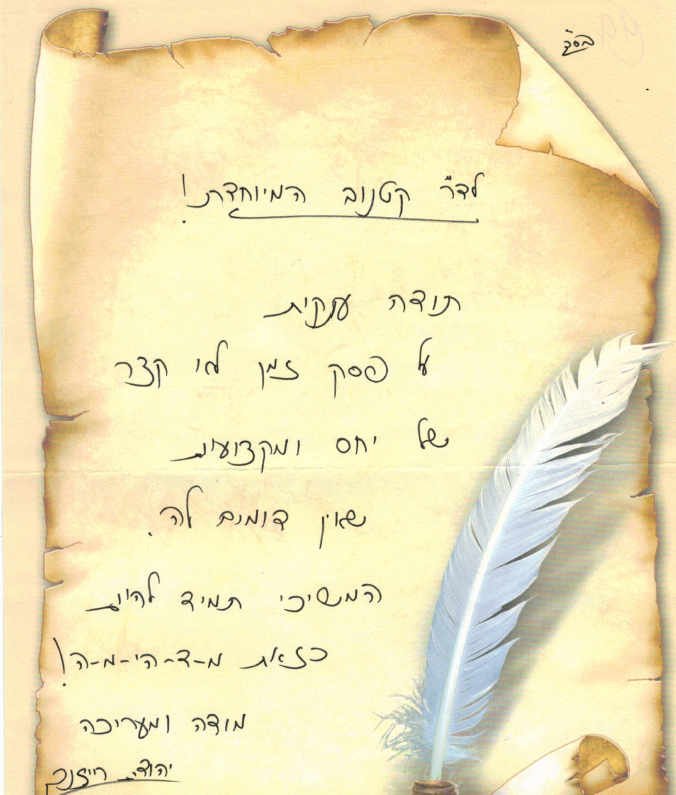 בס"ד
לד"ר קטנוב המיוחדת!
תודה ענקית
על פסק זמן לא קצר
של יחס ומקצועיות
שאין דומים לה.
המשיכי תמיד להיות
כזאת מ-ד-הי-מ-ה!
מודה ומעריכה
יהודית